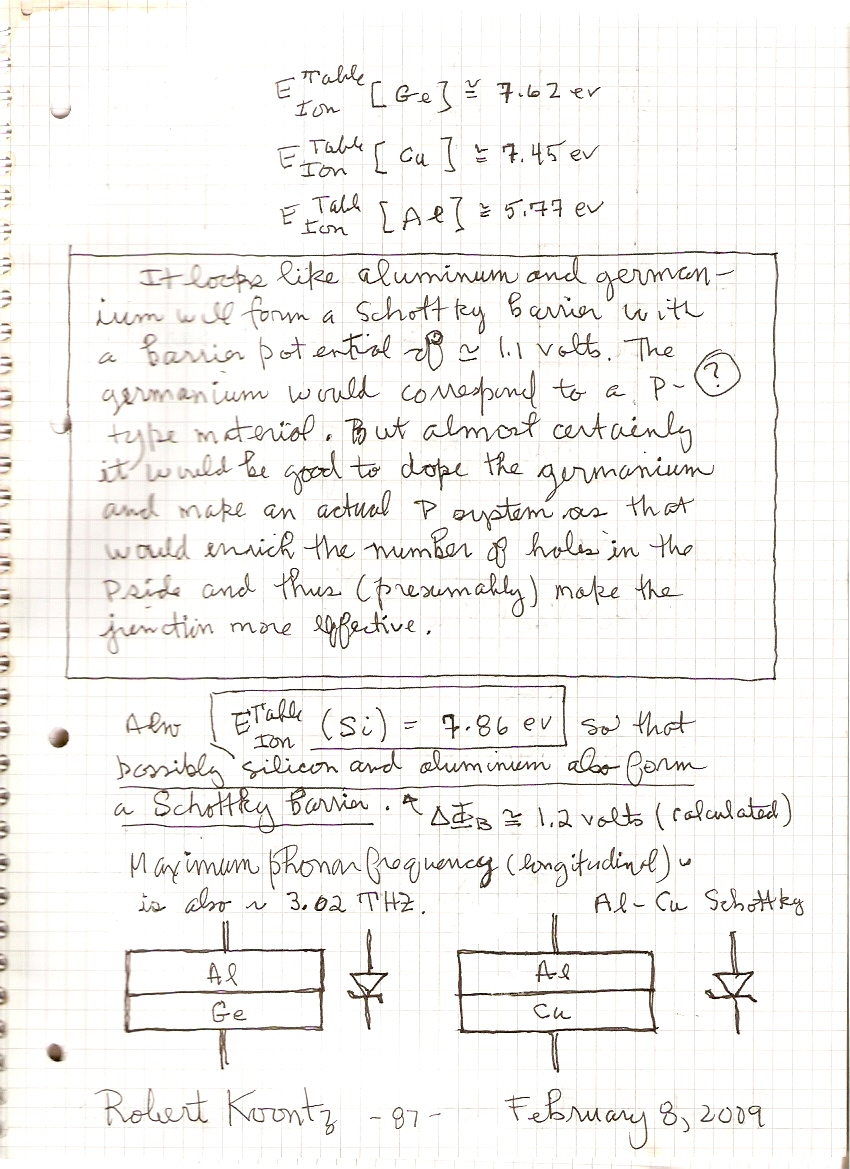 E Table Ion [Ge] ≅ 7.62 ev
E Table Ion [Cu] ≅ 7.45 ev
E Table Ion [Al] ≅ 5.77 ev
It looks like aluminum and german-
ium will form a Schottky Barrier with
a barrier potential of ≃ 1.1 volts. The
germanium would correspond to a P- ?
type material. But almost certainly
it would be good to dope the germanium
and make an actual P system as that
would enrich the number of holes in the
P side and thus (presumably) make the
junction more effective.
Also E Table Ion (Si) = 7.86 ev so that
possibly silicon and aluminum also form
a Schottky Barrier. ↖ ΔΦB ≅ 1.2 volts (calculated)
Maximum phonon frequency (longitudinal)
is also ~ 3.02 THZ. Al-Cu Schottky
Al Al
Ge Cu
Robert Koontz -87- February 8, 2009